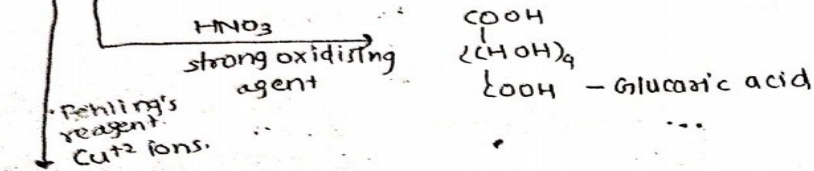 HNO3
strong oxidising
agent
COOH
(CHOH)4
COOH - Glucaric acid
Fehling's
reagent.
Cu+2 ions.
...